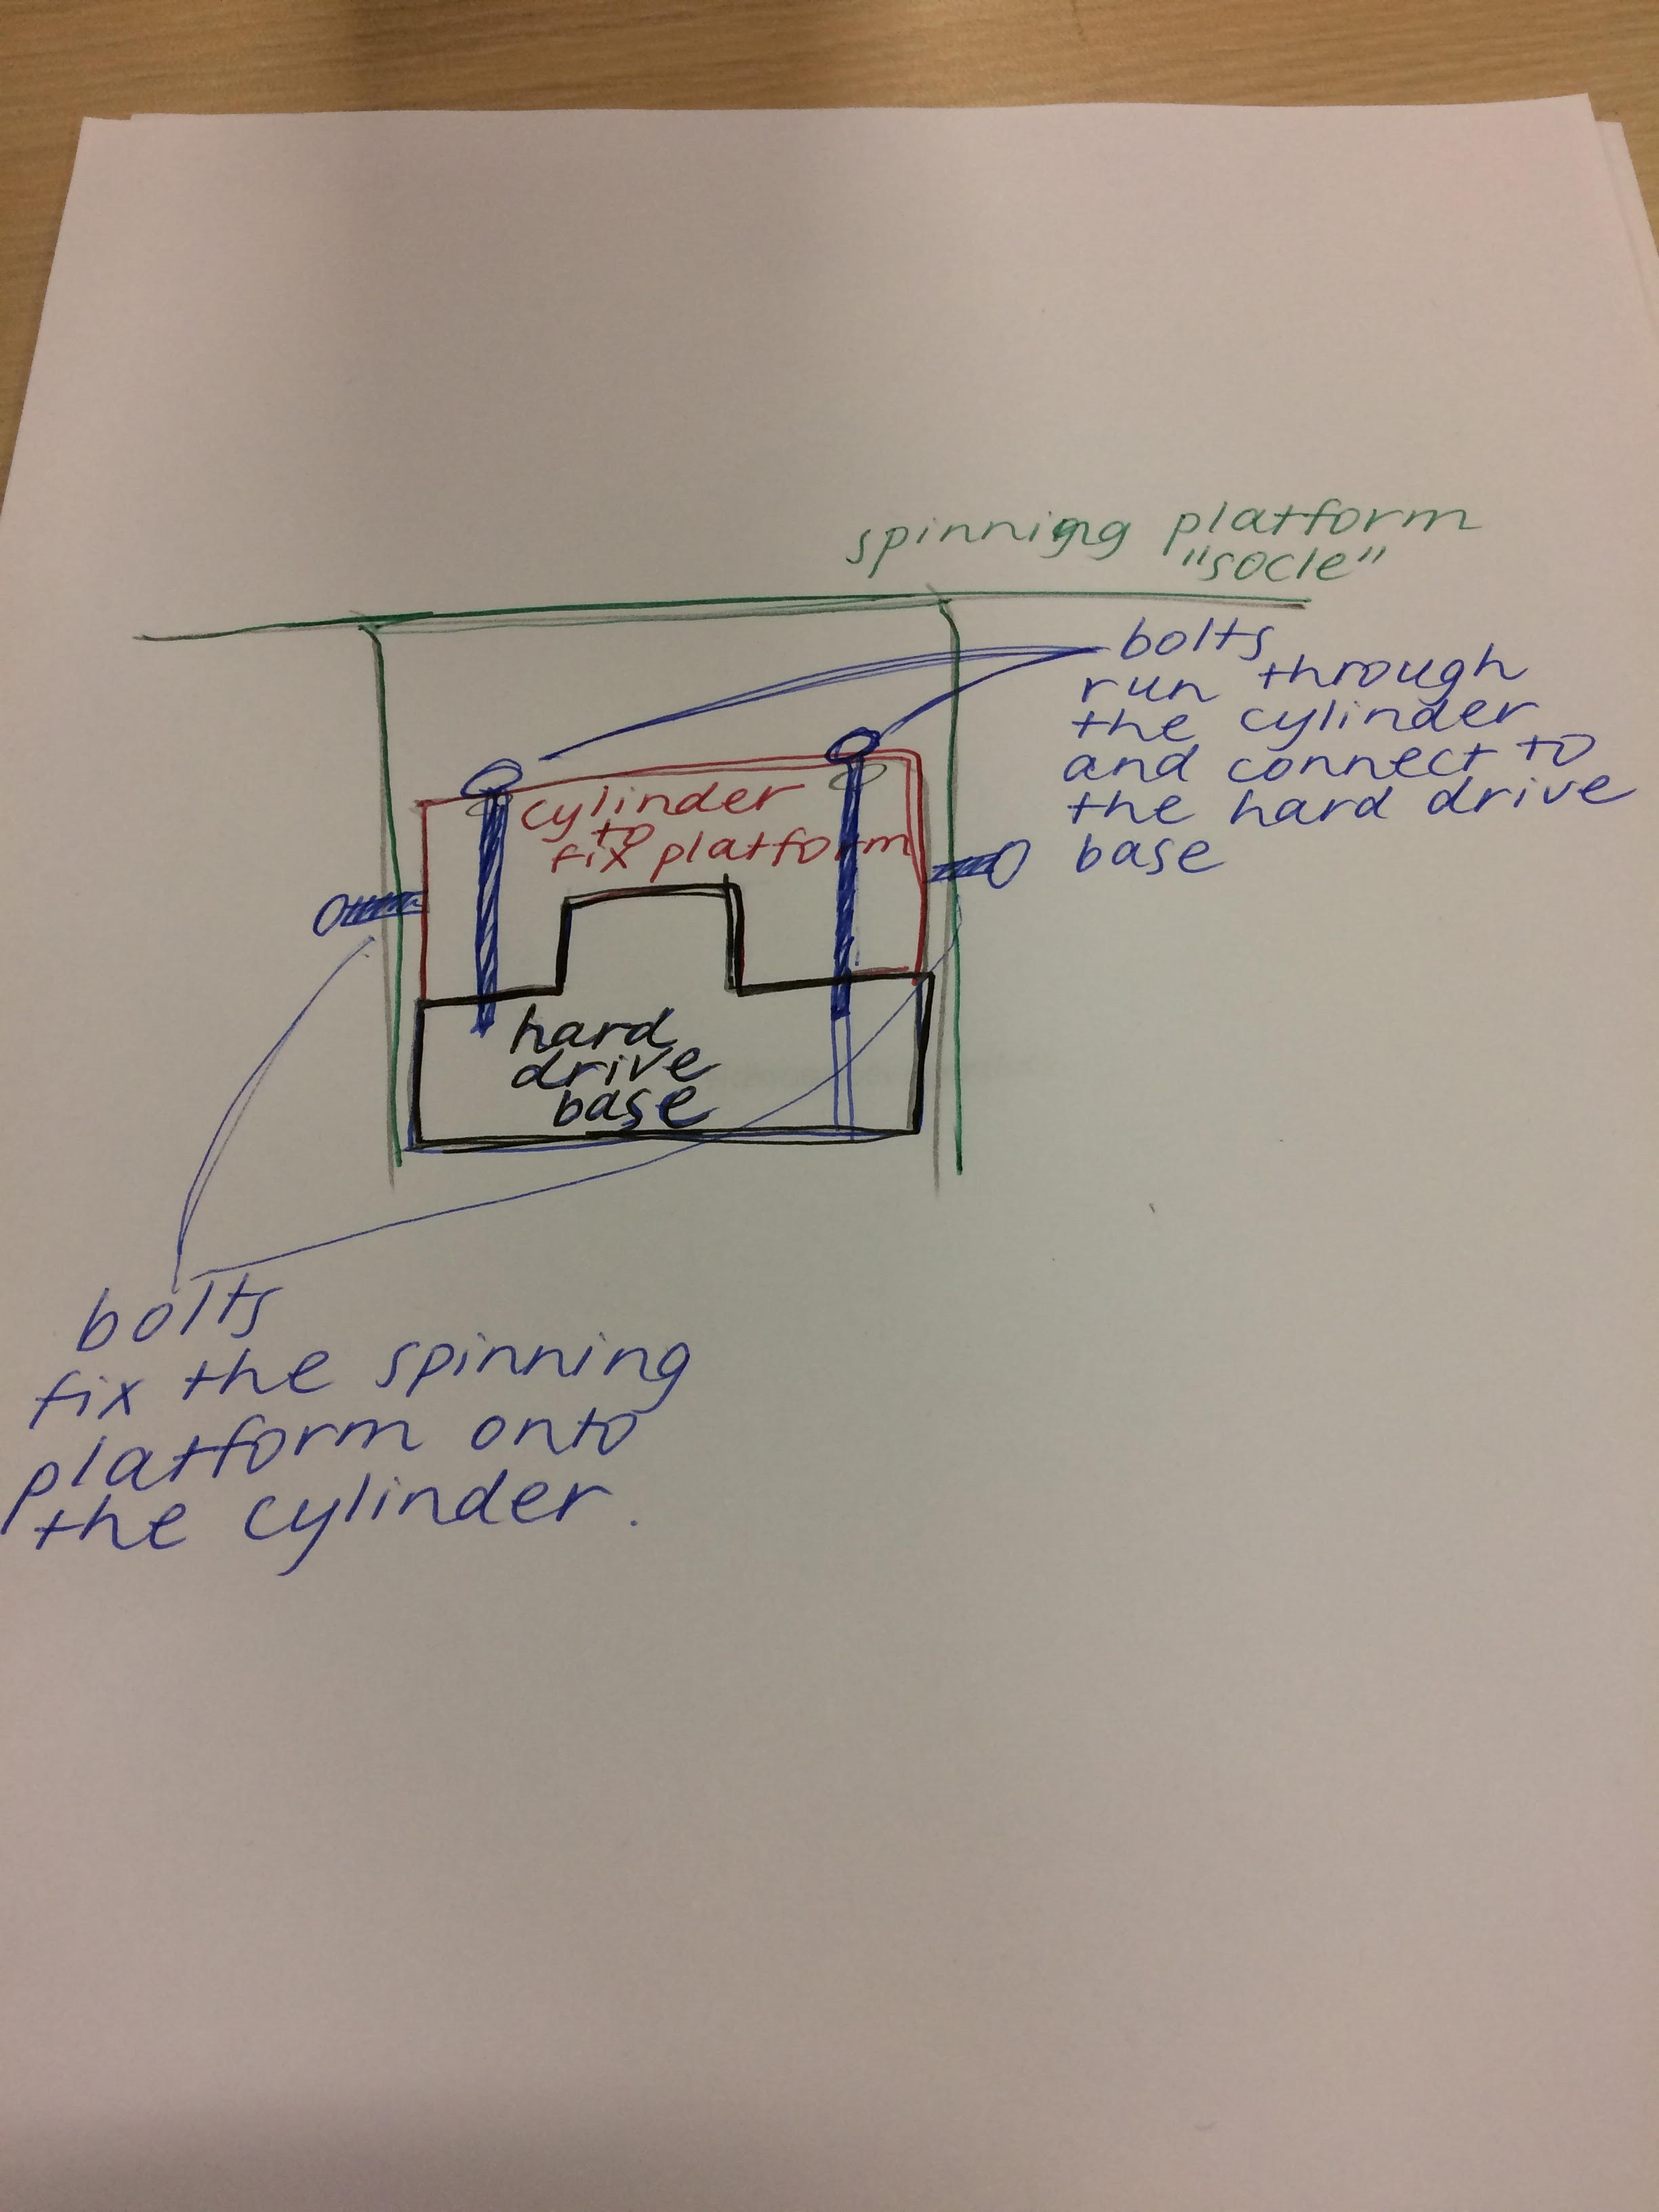 spinning platform
"socle"
bolts
run through
the cylinder
and connect to
the hard drive
base
cylinder
to
fix platform
hard
drive
base
bolts
fix the spinning
platform onto
the cylinder.